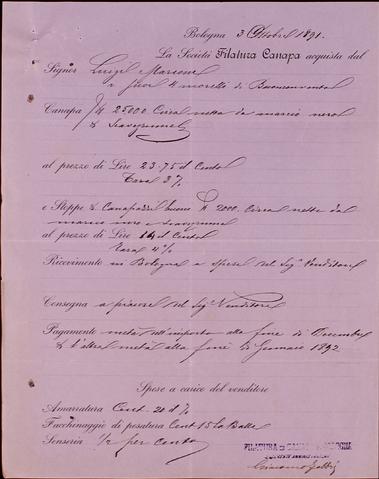 Bologna 3 Ottobre 1891.
La Società Filatura Canapa acquista dal
Signor Luigi Marconi
e
Canapa 25000 Circa netta da marcio nero
e
al prezzo di Lire 23.75 il Cento
Tara 3 %
e Stoppe e Canapazzi buone 2000 Circa nette da
marcio nero e
al prezzo di Lire 14 il Cento
Tara 4 %
Ricevimento in Bologna a spese del Sigr Venditore
Consegna a piacere del Sigr Venditore
Pagamento metà dell'importo alla fine di Dicembre
e l'altra metà alla fine di Gennaio 1892
Spese a carico del venditore
Amarratura Cent. 20 il %
Facchinaggio di pesatura Cent 15 la Balla
Senseria 1/2 per Cento
FILATURA DI CANAPA BOLOGNA